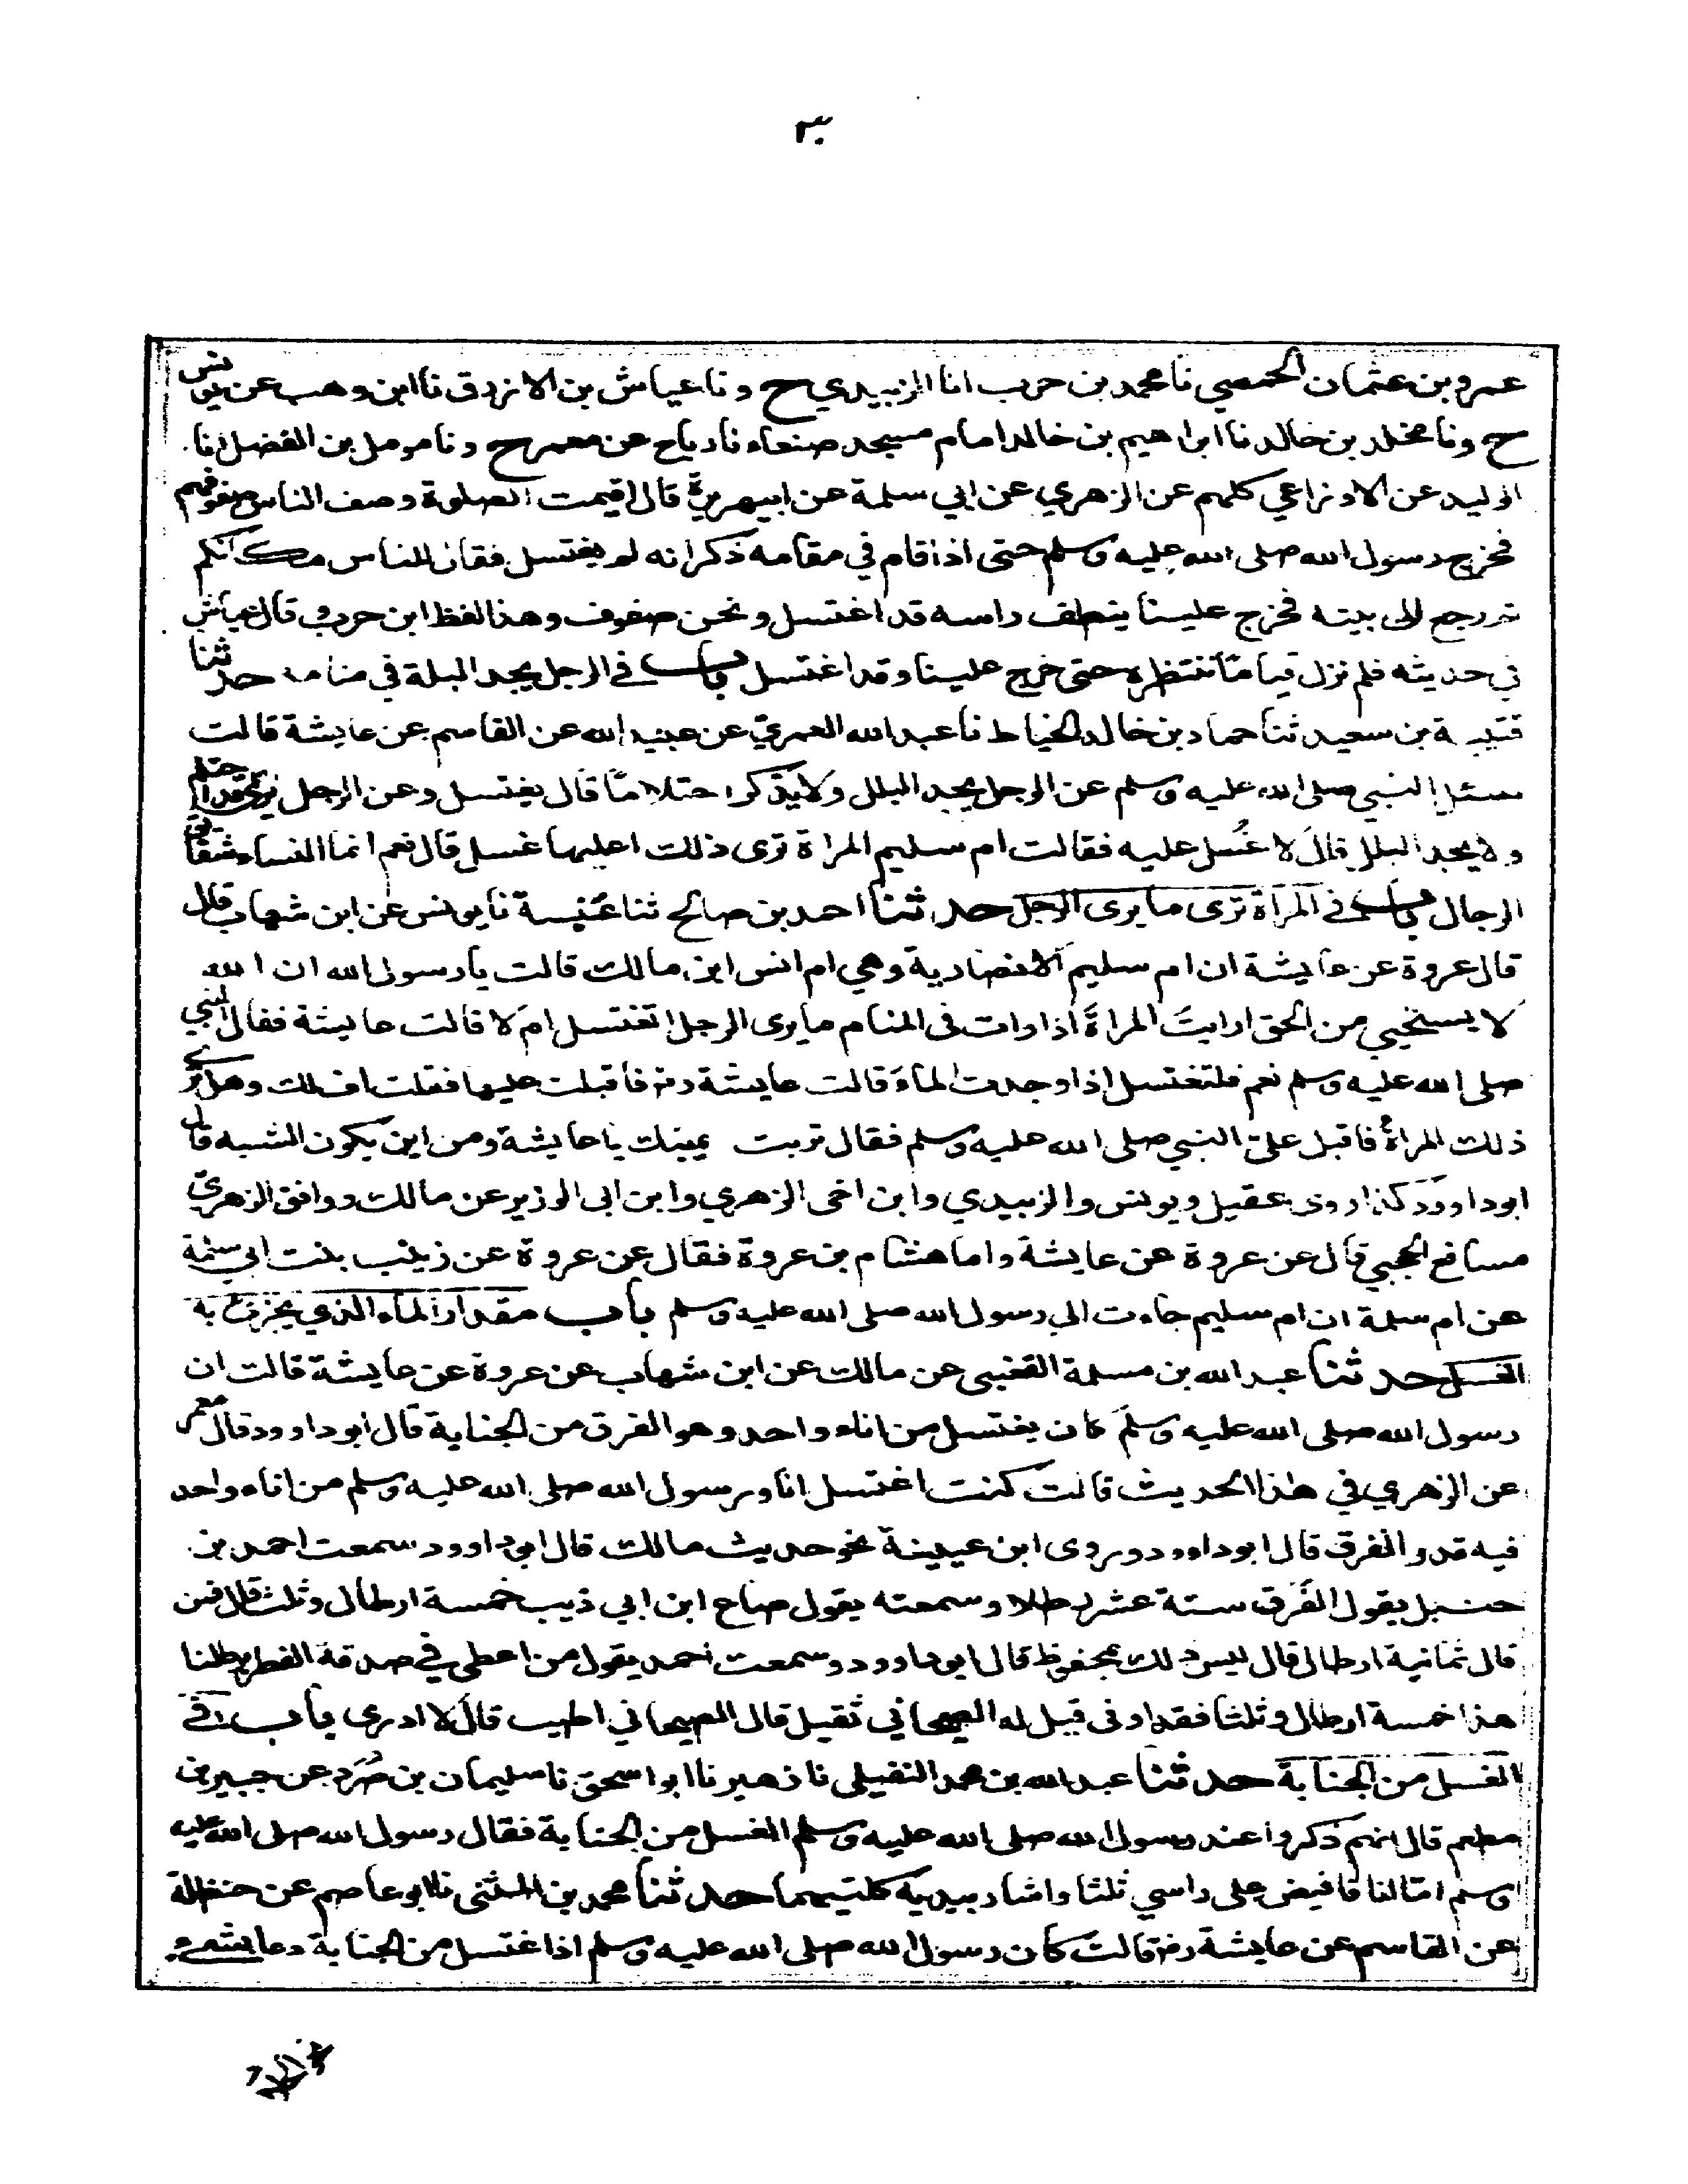 ٣٠
عمرو بن عثمان الحمصي نا محمد بن حرب انا الزبيدي ح ونا عياش بن الازرق نا ابن وهب عن يونس
ح ونا مخلد بن خالد نا ابراهيم بن خالد امام مسجد صنعاء نا رباح عن معمر ح ونا مومل بن الفضل نا
الوليد عن الاوزاعي كلهم عن الزهري عن ابي سلمة عن ابيهريرة قال اقيمت الصلوة وصف الناس صفوفهم
فخرج رسول الله صلى الله عليه وسلم حتى اذا قام في مقامه ذكر انه لم يغتسل فقال للناس مكانكم
ثم رجع الى بيته فخرج علينا ينطف راسه قد اغتسل ونحن صفوف وهذا لفظ ابن حرب وقال عياش
في حديثه فلم نزل قياما ننتظره حتى خرج علينا وقد اغتسل باب في الرجل يجد البلة في منامه حدثنا
قتيبة بن سعيد ثنا حماد بن خالد الخياط نا عبد الله العمري عن عبيد الله عن القاسم عن عايشة قالت
سئل النبي صلى الله عليه وسلم عن الرجل يجد البلل ولا يذكر احتلاما قال يغتسل وعن الرجل يرى قد احتلم
ولا يجد البلل قال لا غُسل عليه فقالت ام سليم المراة ترى ذلك اعليها غسل قال نعم انما النساء شقائق
الرجال باب في المرأة ترى ما يرى الرجل حدثنا احمد بن صالح ثنا عنبسة نا يونس عن ابن شهاب قال
قال عروة عن عايشة ان ام سليم الانصارية وهي ام انس ابن مالك قالت يا رسول الله ان الله
لا يستحيي من الحق ارايت المراة اذا رات في المنام ما يرى الرجل اتغتسل ام لا قالت عايشة فقال النبي
صلى الله عليه وسلم نعم فلتغتسل اذا وجدت الماء قالت عايشة رضـ فاقبلت عليها فقلت اف لك وهل ترى
ذلك المراةُ فاقبل على النبي صلى الله عليه وسلم فقال تربت يمينك يا عايشة ومن اين يكون الشبه قال
ابو داوود كذا روى عقيل ويونس والزبيدي وابن اخى الزهري وابن ابى الوزير عن مالك ووافق الزهري
مسافع الحجبي قال عن عروة عن عايشة واما هشام بن عروة فقال عن عروة عن زينب بنت ابي سلمة
عن ام سلمة ان ام سليم جاءت الي رسول الله صلى الله عليه وسلم باب مقدار الماء الذي يجزئ به
الغسل حدثنا عبد الله بن مسلمة القعنبى عن مالك عن ابن شهاب عن عروة عن عايشة قالت ان
رسول الله صلى الله عليه وسلم كان يغتسل من اناء واحد وهو الفرق من الجنابة قال ابو داوود قال معمر
عن الزهري في هذا الحديث قالت كنت اغتسل انا ورسول الله صلى الله عليه وسلم من اناء واحد
فيه قدر الفرق قال ابو داوود وروى ابن عيينة نحو حديث مالك قال ابو داوود سمعت احمد بن
حنبل يقول الفَرَق ستة عشر رطلا وسمعته يقول صاح ابن ابي ذيب خمسة ارطال وثلث قال فمن
قال ثمانية ارطال قال ليس ذلك بمحفوظ قال ابو داوود وسمعت احمد يقول من اعطى في صدقة الفطر برطلنا
هذا خمسة ارطال وثلثا فقد اوفى قيل له الصيحاني ثقيل قال الصيحاني اطيب قال لا ادرى باب في
الغسل من الجنابة حدثنا عبد الله بن محمد النفيلى نا زهير نا ابو اسحق نا سليمان بن صُرَد عن جبير بن
مطعم قال انهم ذكروا عند رسول الله صلى الله عليه وسلم الغسل من الجنابة فقال رسول الله صلى الله عليه
وسلم اما انا فافيض على راسي ثلثا واشار بيديه كلتيهما حدثنا محمد بن المثنى نا ابو عاصم عن حنظلة
عن القاسم عن عايشة رضـ قالت كان رسول الله صلى الله عليه وسلم اذا اغتسل من الجنابة دعا بشىء